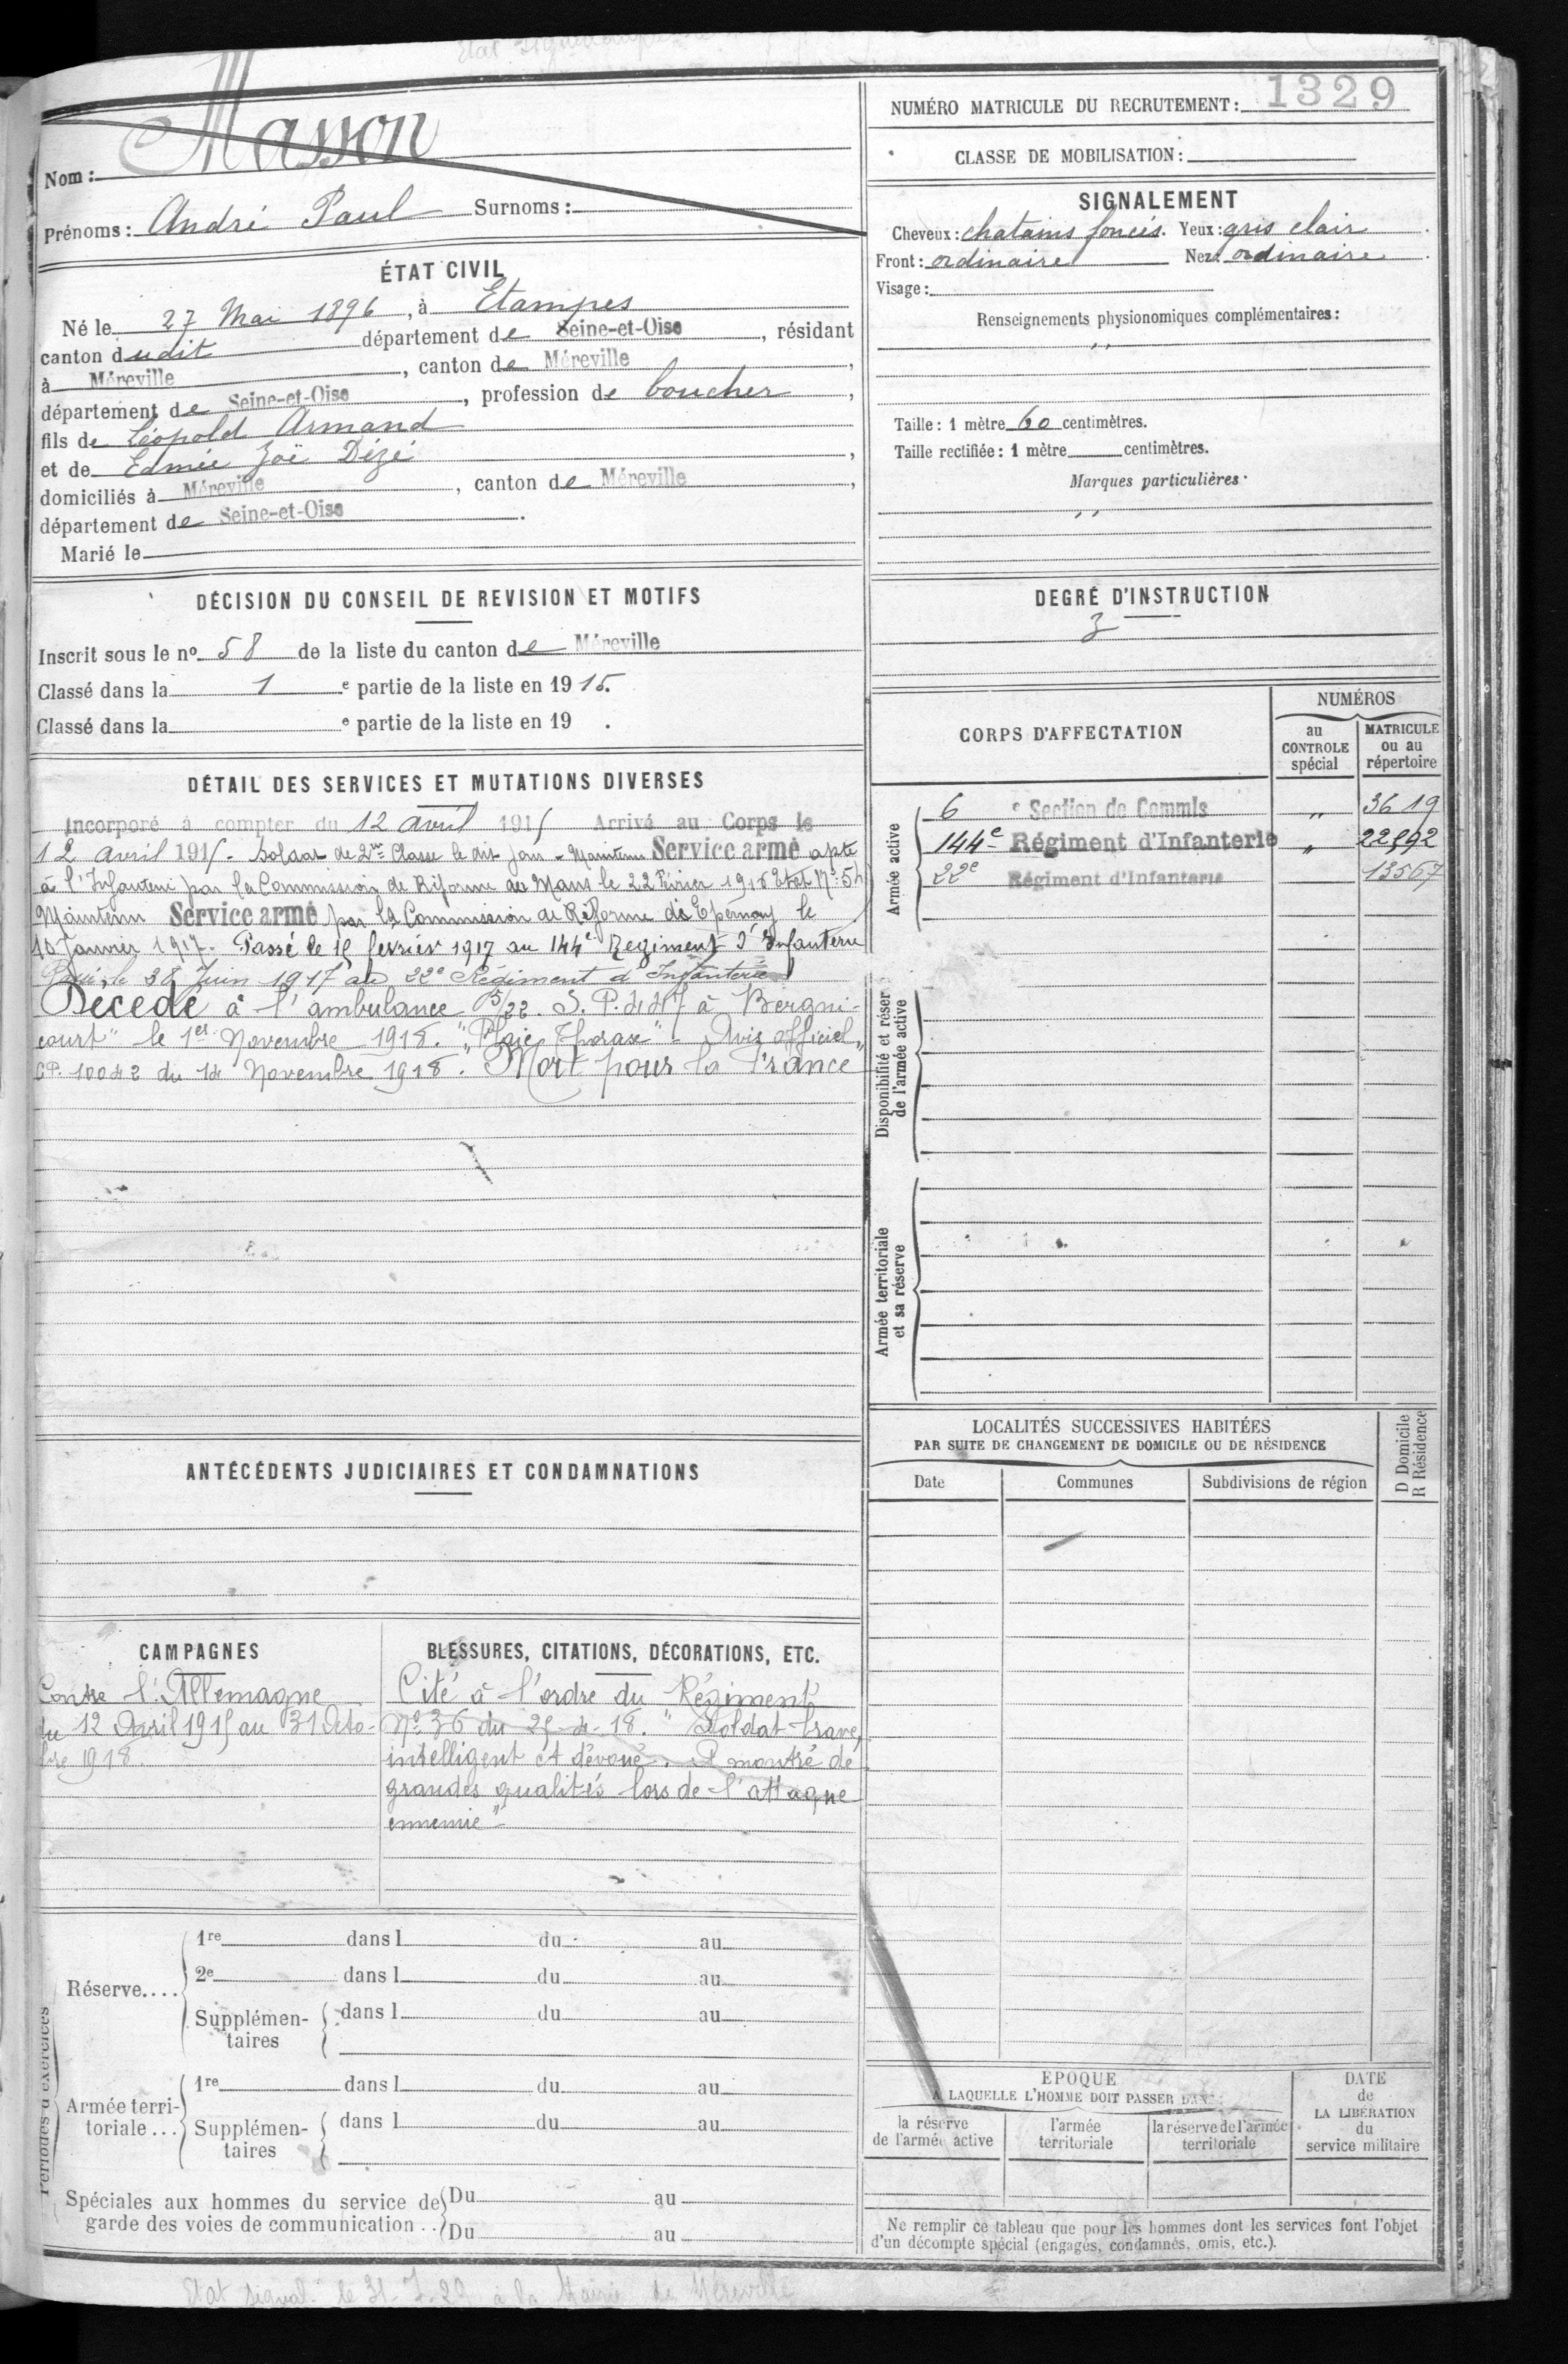 NUMÉRO MATRICULE DU RECRUTEMENT: 1329
CLASSE DE MOBILISATION:
Nom: Masson
Prénoms: André Paul Surnoms:
ÉTAT CIVIL
Né le 27 Mai 1896, à Etampes
canton dudit département de Seine-et-Oise, résidant
à Méreville, canton de Méreville,
département de Seine-et-Oise, profession de boucher,
fils de Léopold Armand
et de Edmée Zoë Dézé,
domiciliés à Méreville, canton de Méreville,
département de Seine-et-Oise.
Marié le
DÉCISION DU CONSEIL DE REVISION ET MOTIFS
Inscrit sous le nº 58 de la liste du canton de Méreville
Classé dans la 1 e partie de la liste en 1915.
Classé dans la e partie de la liste en 19 .
DÉTAIL DES SERVICES ET MUTATIONS DIVERSES
Incorporé à compter du 12 avril 1915 Arrivé au Corps le
12 avril 1915. Soldat de 2me Classe le dit jour - Maintenu Service armé apte
à l'Infanterie par la Commission de Réforme du Mans le 22 Février 1916 Etat Nº 54
Maintenu Service armé par la Commission de Réforme d'Epernay le
10 Janvier 1917. Passé le 15 février 1917 au 144e Regiment d'Infanterie
Passé le 38 Juin 1917 au 22e Régiment d'Infanterie
Décédé à l'ambulance 5/22. S.P. 247 à "Bergni-
court" le 1er Novembre 1918. "Plaie Thorax" - Avis officiel
CP. 10042 du 14 Novembre 1918. Mort pour la France
ANTÉCÉDENTS JUDICIAIRES ET CONDAMNATIONS
CAMPAGNES
Contre l'Allemagne
du 12 Avril 1915 au 31 Octo-
bre 1918
BLESSURES, CITATIONS, DÉCORATIONS, ETC.
Cité à l'ordre du Régiment
Nº 36 du 25-4-18. "Soldat brave,
intelligent et dévoué. A montré de
grandes qualités lors de l'attaque
ennemie"
Périodes d'exercices
Réserve....
1re dans l du au
2e dans l du au
Supplémen-taires dans l du au
Armée terri-toriale...
1re dans l du au
Supplémen-taires dans l du au
Spéciales aux hommes du service de Du au
garde des voies de communication .. Du au
SIGNALEMENT
Cheveux: chatains foncés. Yeux: gris clair.
Front: ordinaire Nez: ordinaire.
Visage:
Renseignements physionomiques complémentaires:
,,
Taille: 1 mètre 60 centimètres.
Taille rectifiée: 1 mètre centimètres.
Marques particulières:
,,
DEGRÉ D'INSTRUCTION
3
CORPS D'AFFECTATION
NUMÉROS
au CONTROLE spécial
MATRICULE ou au répertoire
Armée active
6 e Section de Commis " 3619
144e Régiment d'Infanterie " 22592
22e Régiment d'Infanterie 13567
Disponibilité et réser
de l'armée active
Armée territoriale
et sa réserve
LOCALITÉS SUCCESSIVES HABITÉES
PAR SUITE DE CHANGEMENT DE DOMICILE OU DE RÉSIDENCE
D Domicile
R Résidence
Date Communes Subdivisions de région
ÉPOQUE
A LAQUELLE L'HOMME DOIT PASSER DANS:
la réserve de l'armée active
l'armée territoriale
la réserve de l'armée territoriale
DATE
de
LA LIBÉRATION
du
service militaire
Ne remplir ce tableau que pour les hommes dont les services font l'objet
d'un décompte spécial (engagés, condamnés, omis, etc.).
Etat signal. le 31-7-29 à la Mairie de Méreville